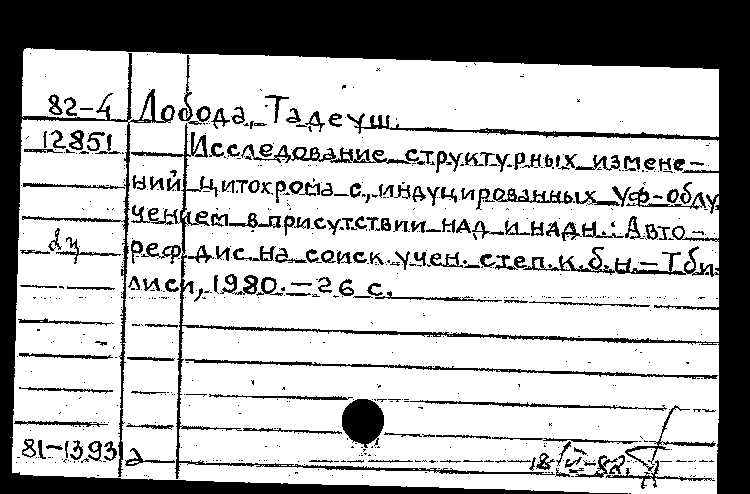 82-4 Лобода, Тадеуш.
12851 Исследование структурных измене-
ний цитохрома с, индуцированных УФ-облу
чением в присутствии НАД и НАДН.: Авто-
2ч реф дис. на соиск. учен. степ. к.б.н. – Тби-
лиси, 1980. – 26 с.
81-13931а 18/VI-82.